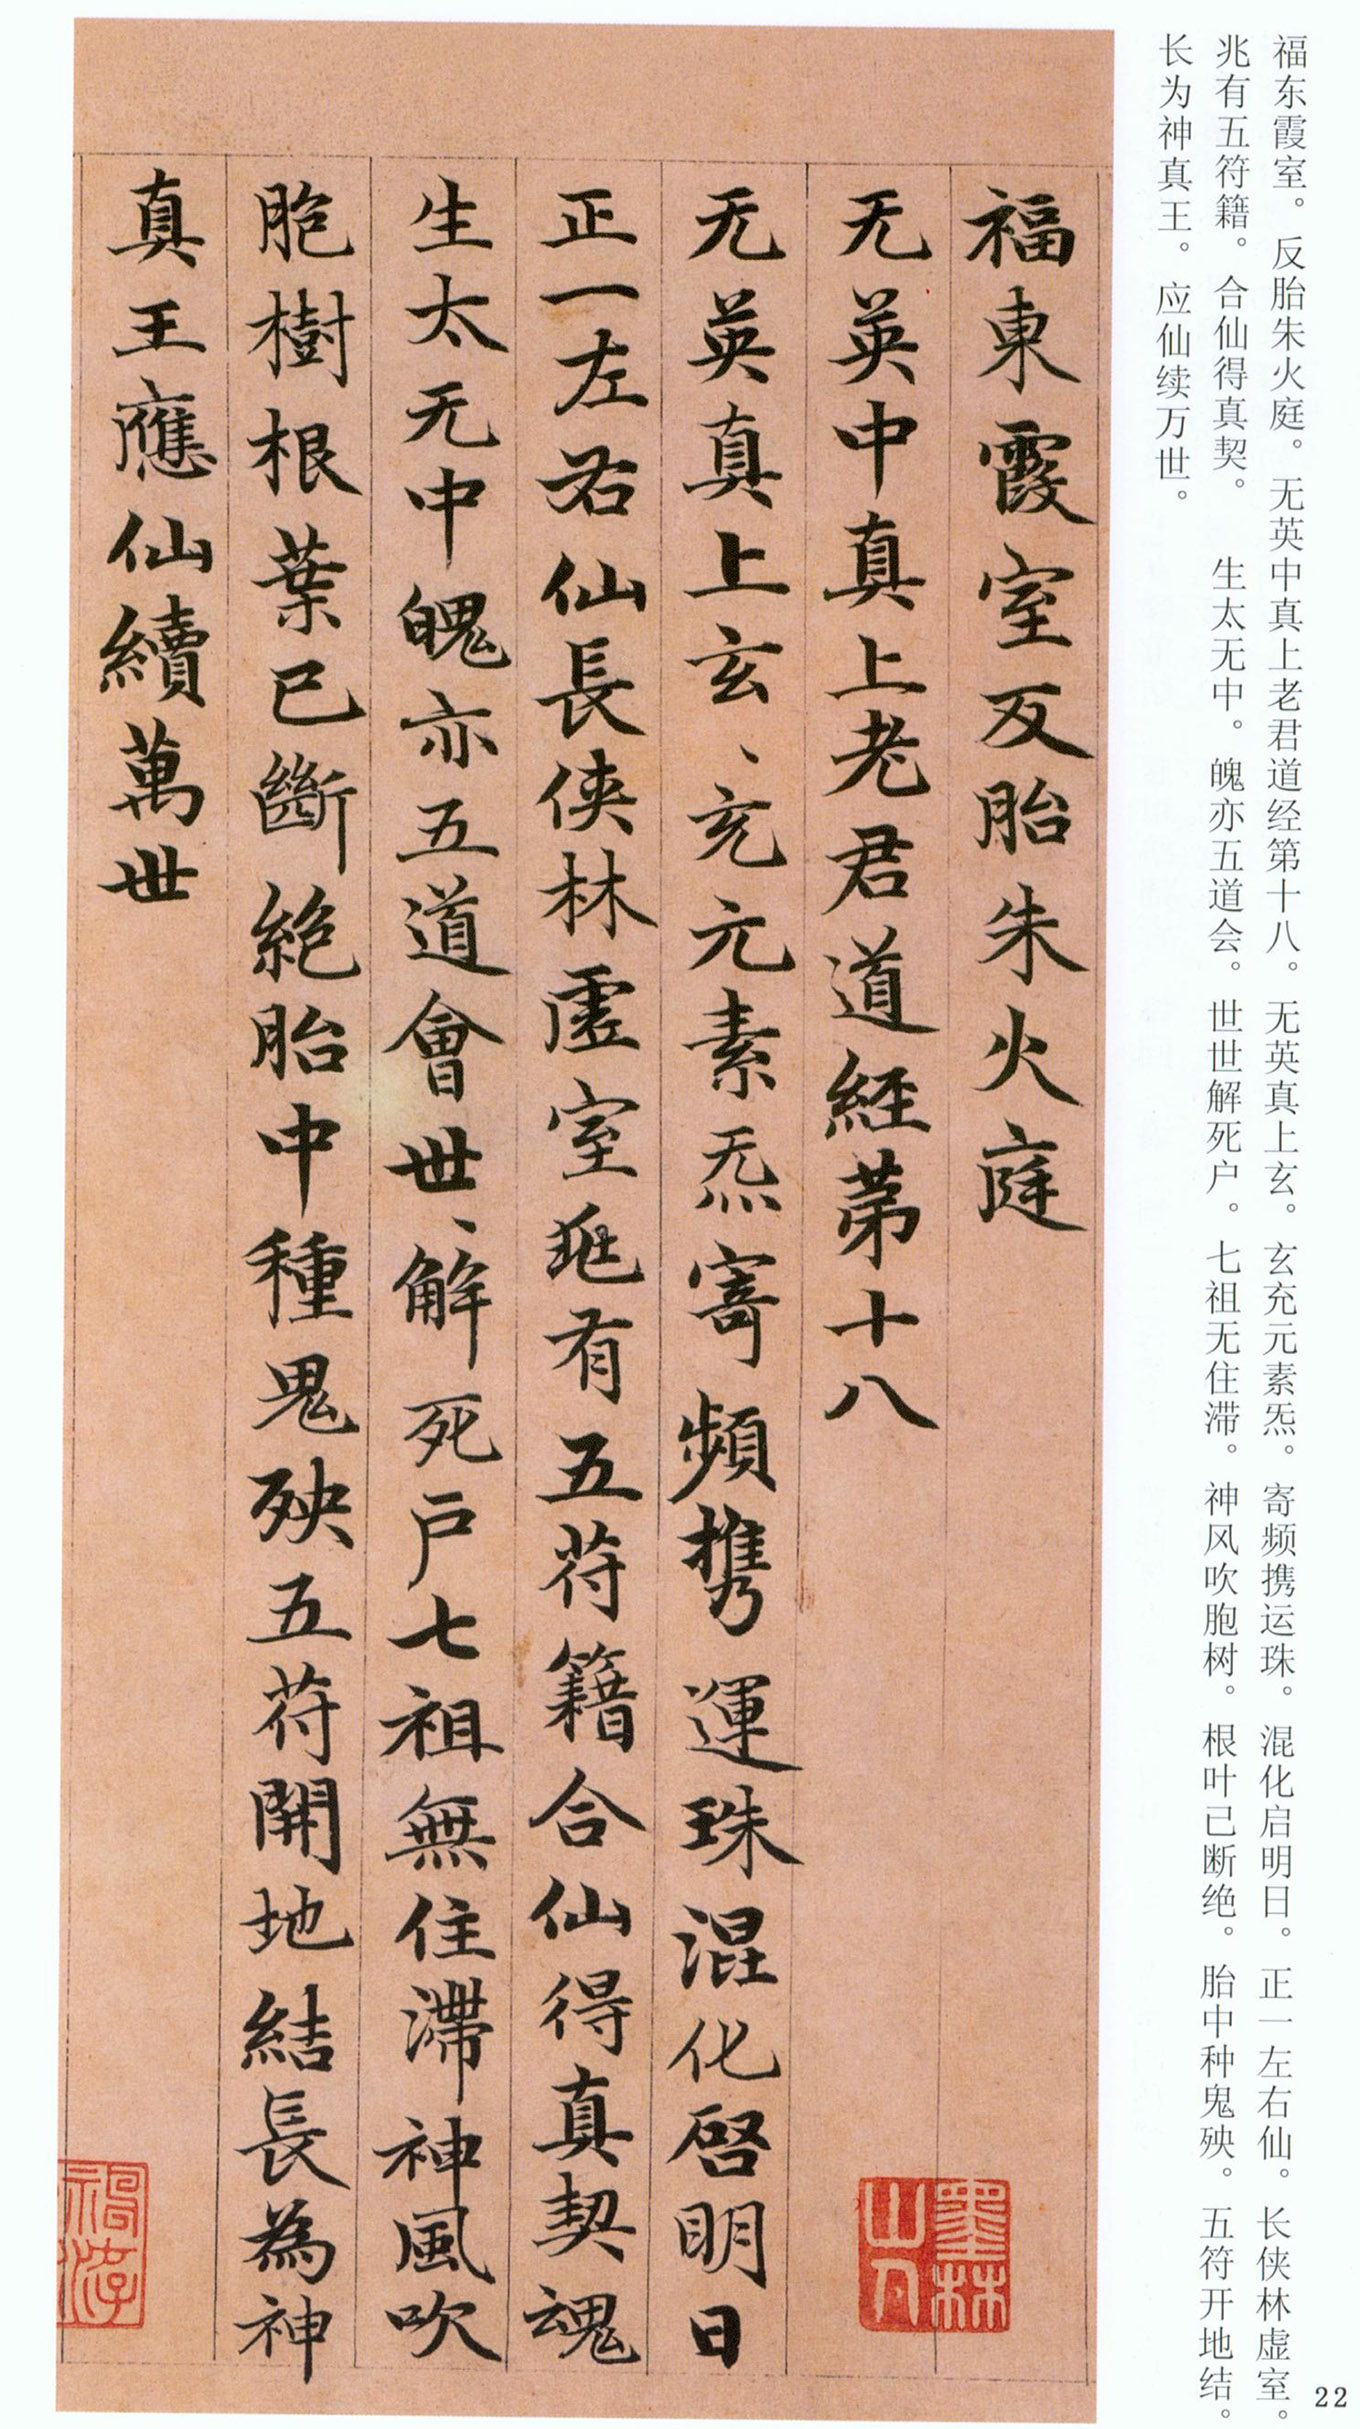 福东霞室。反胎朱火庭。无英中真上老君道经第十八。无英真上玄。玄充元素炁。寄频携运珠。混化启明日。正一左右仙。长侠林虚室。
兆有五符籍。合仙得真契。 生太无中。魄亦五道会。世世解死户。七祖无住滞。神风吹胞树。根叶已断绝。胎中种鬼殃。五符开地结。
长为神真王。应仙续万世。
福東霞室反胎朱火庭
无英中真上老君道經第十八
无英真上玄、充元素炁寄頻携運珠混化啓明日
正一左右仙長侠林虛室兆有五符籍合仙得真契魂
生太无中魄亦五道會世、解死戶七祖無住滯神風吹
胞樹根葉已斷絕胎中種鬼殃五符開地結長為神
真王應仙續萬世
墨林
山人
22